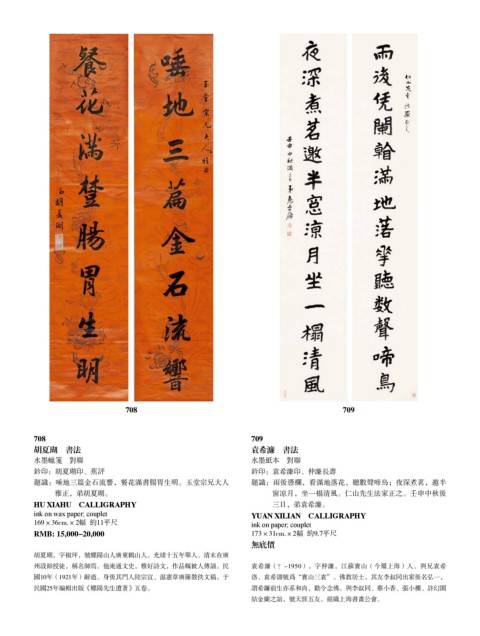 唾地三篇金石流響
玉堂宗兄大人雅正
餐花滿㯫腸胃生明
弟胡夏瑚
雨後凭闌幹滿地落花聽數聲啼鳥
仁山先生法家正之
夜深煮茗邀半窗涼月坐一榻清風
壬申中秋後三日弟袁希濂
708
709
708
胡夏瑚　書法
水墨蠟箋　對聯
鈐印：胡夏瑚印、蕉評
題識：唾地三篇金石流響，餐花滿書腸胃生明。玉堂宗兄大人
雅正，弟胡夏瑚。
HU XIAHU　CALLIGRAPHY
ink on wax paper; couplet
169×36cm. ×2幅　約11平尺
RMB: 15,000–20,000
胡夏瑚，字椒坪，號耀陽山人廣東鶴山人。光緒十五年舉人。清末在廣
州設館授徒，稱名師焉。他術通文史，雅好詩文，作品輒被人傳誦。民
國10年（1921年）辭逝。身後其門人陸宗宣、溫憲章廣羅散佚文稿，于
民國25年編輯出版《耀陽先生遺著》五卷。
709
袁希濂　書法
水墨紙本　對聯
鈐印：袁希濂印、仲濂長壽
題識：雨後憑欄，看滿地落花，聽數聲啼鳥；夜深煮茗，邀半
窗凉月，坐一榻清風。仁山先生法家正之。壬申中秋後
三日，弟袁希濂。
YUAN XILIAN　CALLIGRAPHY
ink on paper; couplet
173×31cm. ×2幅　約9.7平尺
無底價
袁希濂（？~1950），字仲濂，江蘇寶山（今屬上海）人。與兄袁希
洛、袁希濤號爲“寶山三袁”。佛教居士，其友李叔同出家後名弘一，
謂希濂前生亦系和尚，勸令念佛。與李叔同、蔡小香、張小樓、許幻園
結金蘭之誼，號天涯五友。組織上海書畫公會。